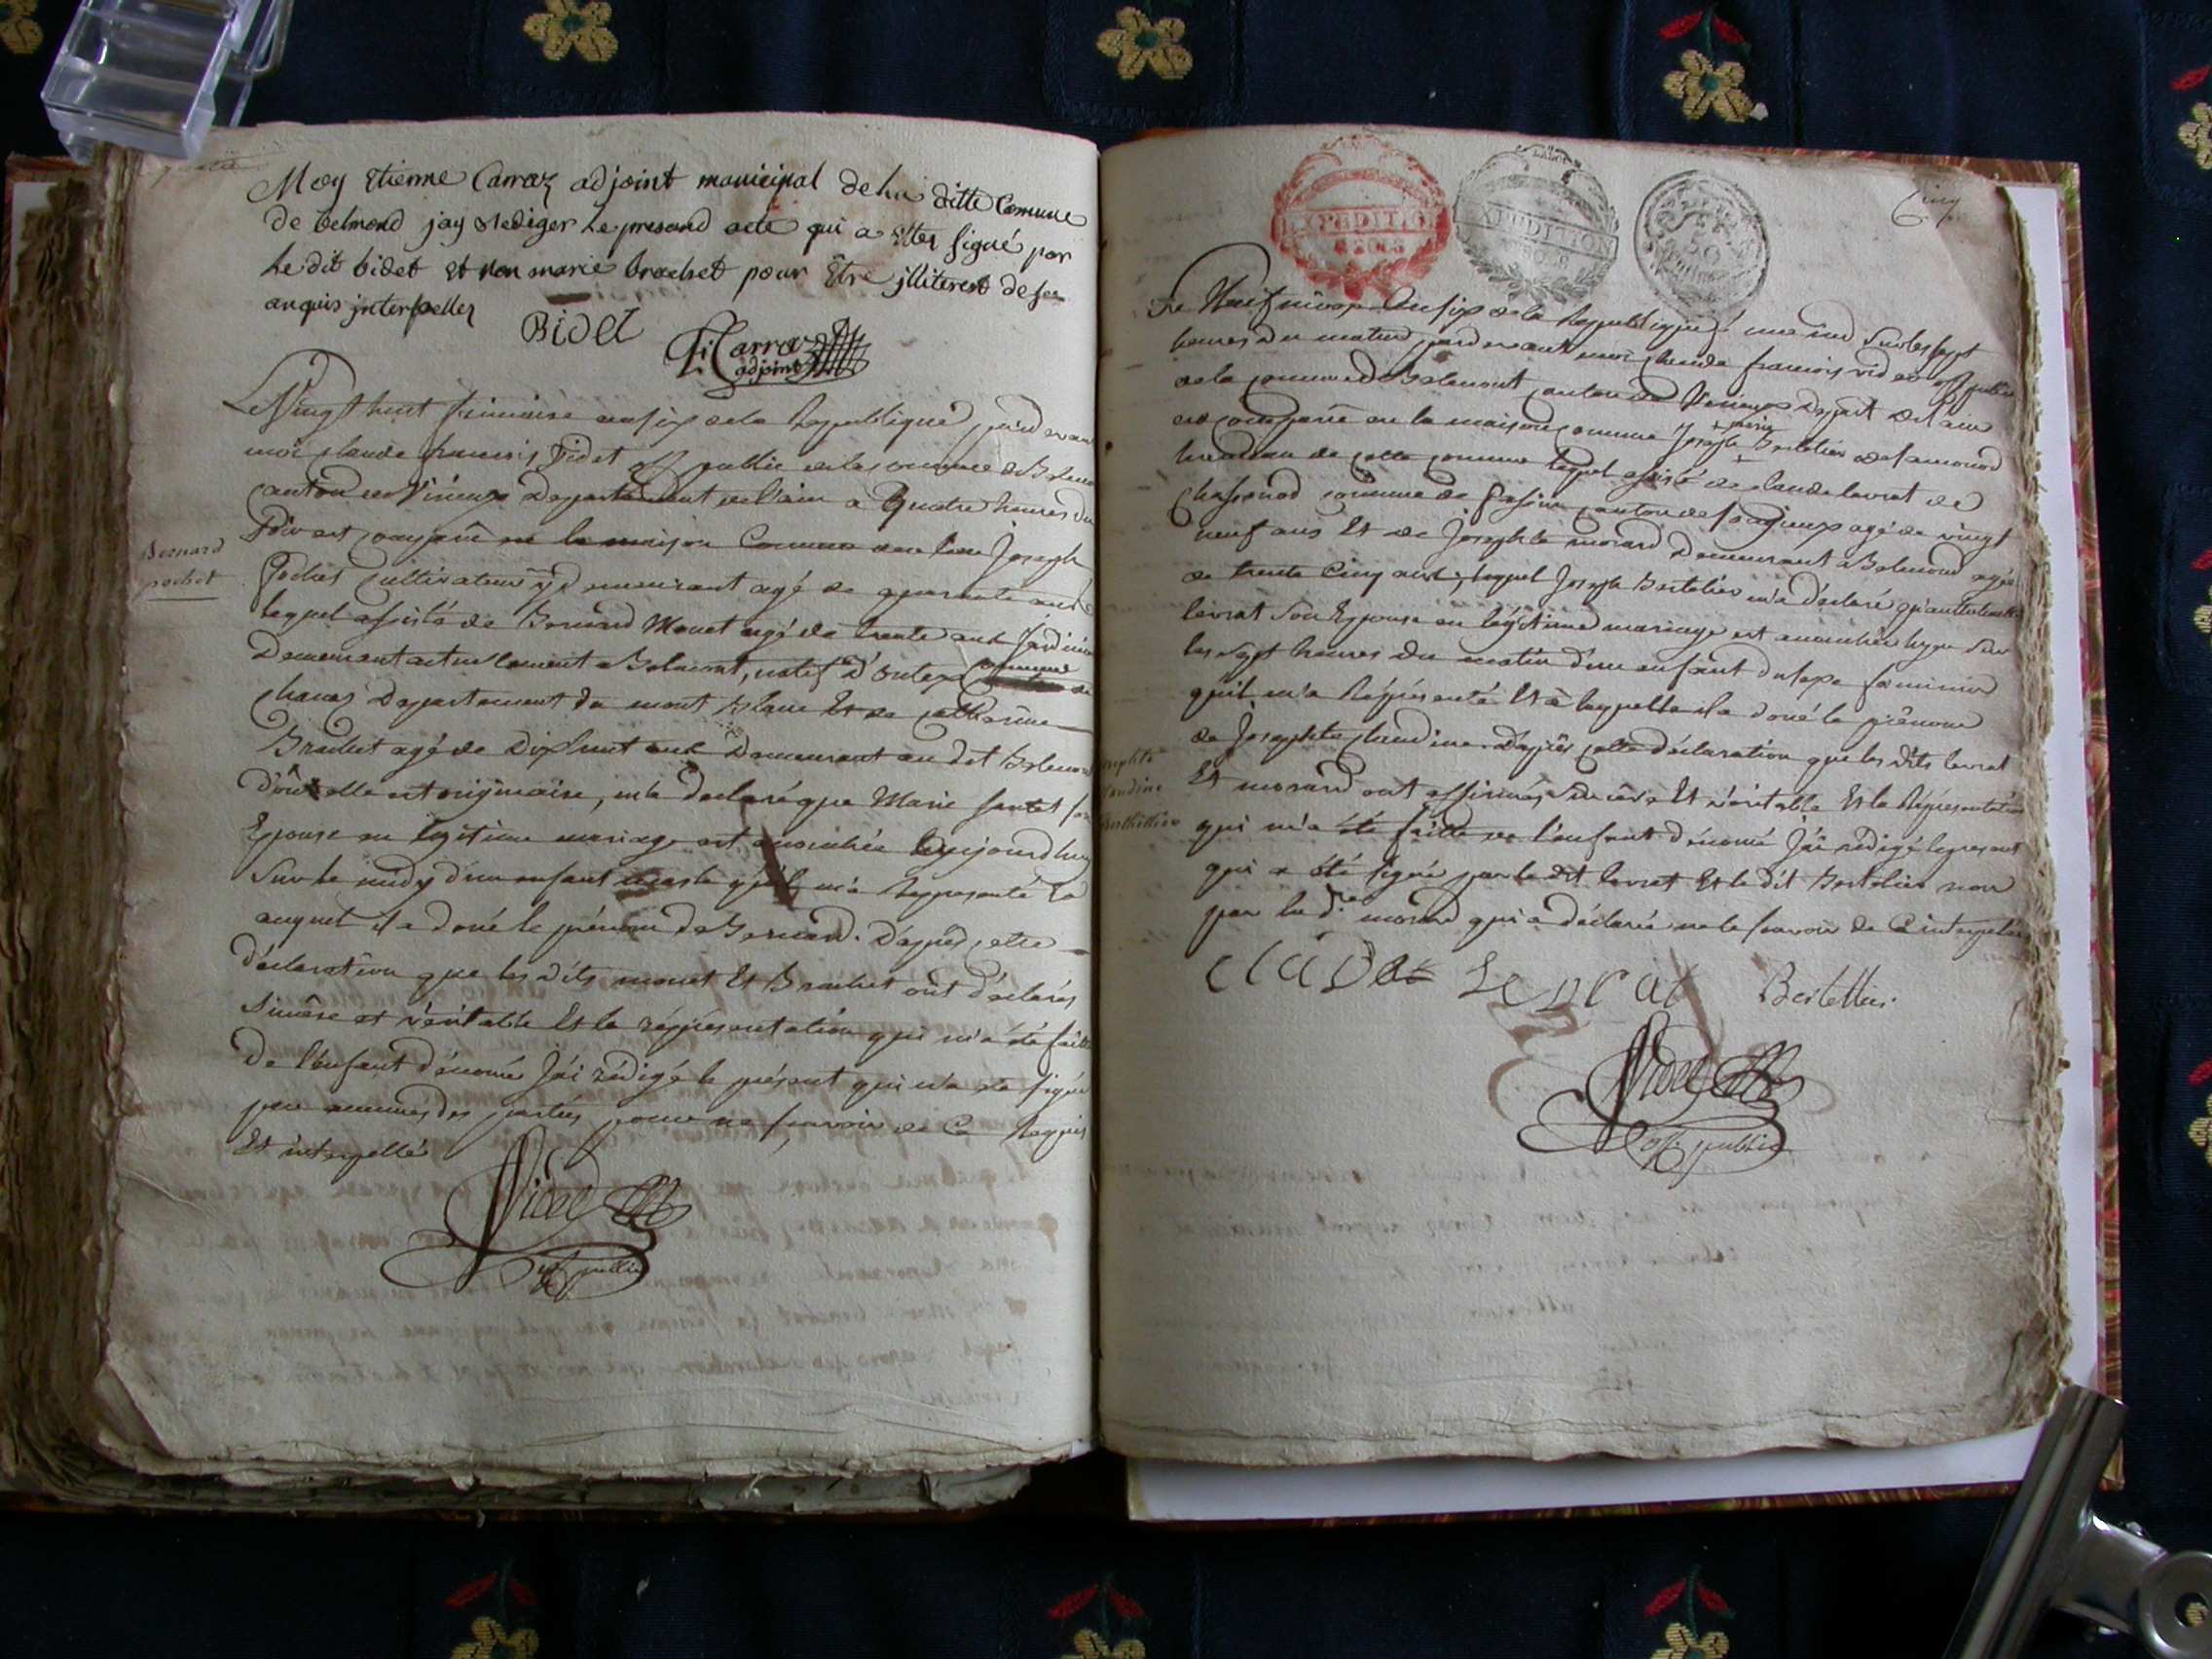 Moy Etienne Carraz adjoint municipal de la ditte Comune
de belmond jay rediger le presand acte qui a etter signé par
le dit bidet et non marie brachet pour être illiterest de ce
anquis interpeller
BIDET
Carraz
adjoint
Le Vingt huit frimaire an six de la Republique, pardevant
moi claude francois Videt off public de la commune de Belmon
canton de Virieux Departement de l'ain a Quatre heures du
Soir est comparu en la maison Commune Joseph
Pochet Cultivateur y demeurant agé de quarante ans
lequel assisté de Bernard Monet agé de trente ans Jardinier
Demeurant actuelement a Belmont, natif d'ontex commune de
chanaz Departement du mont blanc Et de catherine
Brachet agé de Dix huit ans Demeurant au dit Belmon
D'ou elle est originaire, m'a declaré que Marie son
Epouse en legitime mariage est acouchée aujourdhuy
Sur le midy d'un enfant masle qu'il m'a Representé Et
auquel il a doné le prénom de Bernard. D'apprès cette
déclaration que les dits monet Et Brachet ont déclarés
sincère et véritable Et la réprésentation qui m'a été faitte
De l'enfant dénomé J'ai rédigé le présent qui n'a été signé
par aucunes des parties pour ne sçavoir de Ce Requis
Et interpellés
Videt
off public
Bernard
pochet
Cinq
EXPEDITION
EXPEDITION
50
Le Neuf nivose An six de la Republique une ind Sur les sept
heures du matin, pardevant moi claude francois videt off public
de la commune de Belmont canton de Virieux Depart de l'ain
est comparu en la maison commune Joseph Bertelier
de cette commune lequel assisté de claude levrat de
commune de canton de agé de vingt
neuf ans Et de Josephte morard Demeurant a Belmond agée
de trente Cinq ans, lequel Joseph Bertelier m'a déclaré
levrat Son Epouse en légitime mariage est acouchée hyer Sur
les sept heures du matin d'un enfant du sexe féminin
qu'il m'a Réprésenté Et a laquelle il a doné le prénom
de Josephte claudine. D'après cette déclaration que les dits levrat
Et morard ont affirmés sincère Et véritable Et la Réprésentation
qui m'a été faitte de l'enfant dénomé J'ai rédigé le present
qui a été signé par le dit levrat Et le dit Bertelier non
par la d. morard qui a déclaré ne le sçavoir de Ce interpelée
claude Levrat Bertellier
Videt
off. public
josephte
claudine
berthellier